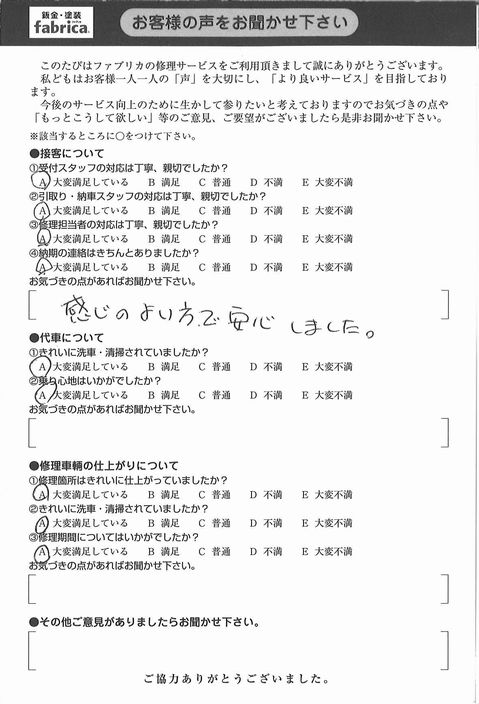 鈑金・塗装
fabrica.
お客様の声をお聞かせ下さい
このたびはファブリカの修理サービスをご利用頂きまして誠にありがとうございます。
私どもはお客様一人一人の「声」を大切にし、「より良いサービス」を目指しており
ます。
今後のサービス向上のために生かして参りたいと考えておりますのでお気づきの点や
「もっとこうして欲しい」等のご意見、ご要望がございましたら是非お聞かせ下さい。
※該当するところに○をつけて下さい。
●接客について
①受付スタッフの対応は丁寧、親切でしたか？
A 大変満足している B 満足 C 普通 D 不満 E 大変不満
②引取り・納車スタッフの対応は丁寧、親切でしたか？
A 大変満足している B 満足 C 普通 D 不満 E 大変不満
③修理担当者の対応は丁寧、親切でしたか？
A 大変満足している B 満足 C 普通 D 不満 E 大変不満
④納期の連絡はきちんとありましたか？
A 大変満足している B 満足 C 普通 D 不満 E 大変不満
お気づきの点があればお聞かせ下さい。
感じのよい方で安心しました。
●代車について
①きれいに洗車・清掃されていましたか？
A 大変満足している B 満足 C 普通 D 不満 E 大変不満
②乗り心地はいかがでしたか？
A 大変満足している B 満足 C 普通 D 不満 E 大変不満
お気づきの点があればお聞かせ下さい。
●修理車輌の仕上がりについて
①修理箇所はきれいに仕上がっていましたか？
A 大変満足している B 満足 C 普通 D 不満 E 大変不満
②きれいに洗車・清掃されていましたか？
A 大変満足している B 満足 C 普通 D 不満 E 大変不満
③修理期間についてはいかがでしたか？
A 大変満足している B 満足 C 普通 D 不満 E 大変不満
お気づきの点があればお聞かせ下さい。
●その他ご意見がありましたらお聞かせ下さい。
ご協力ありがとうございました。